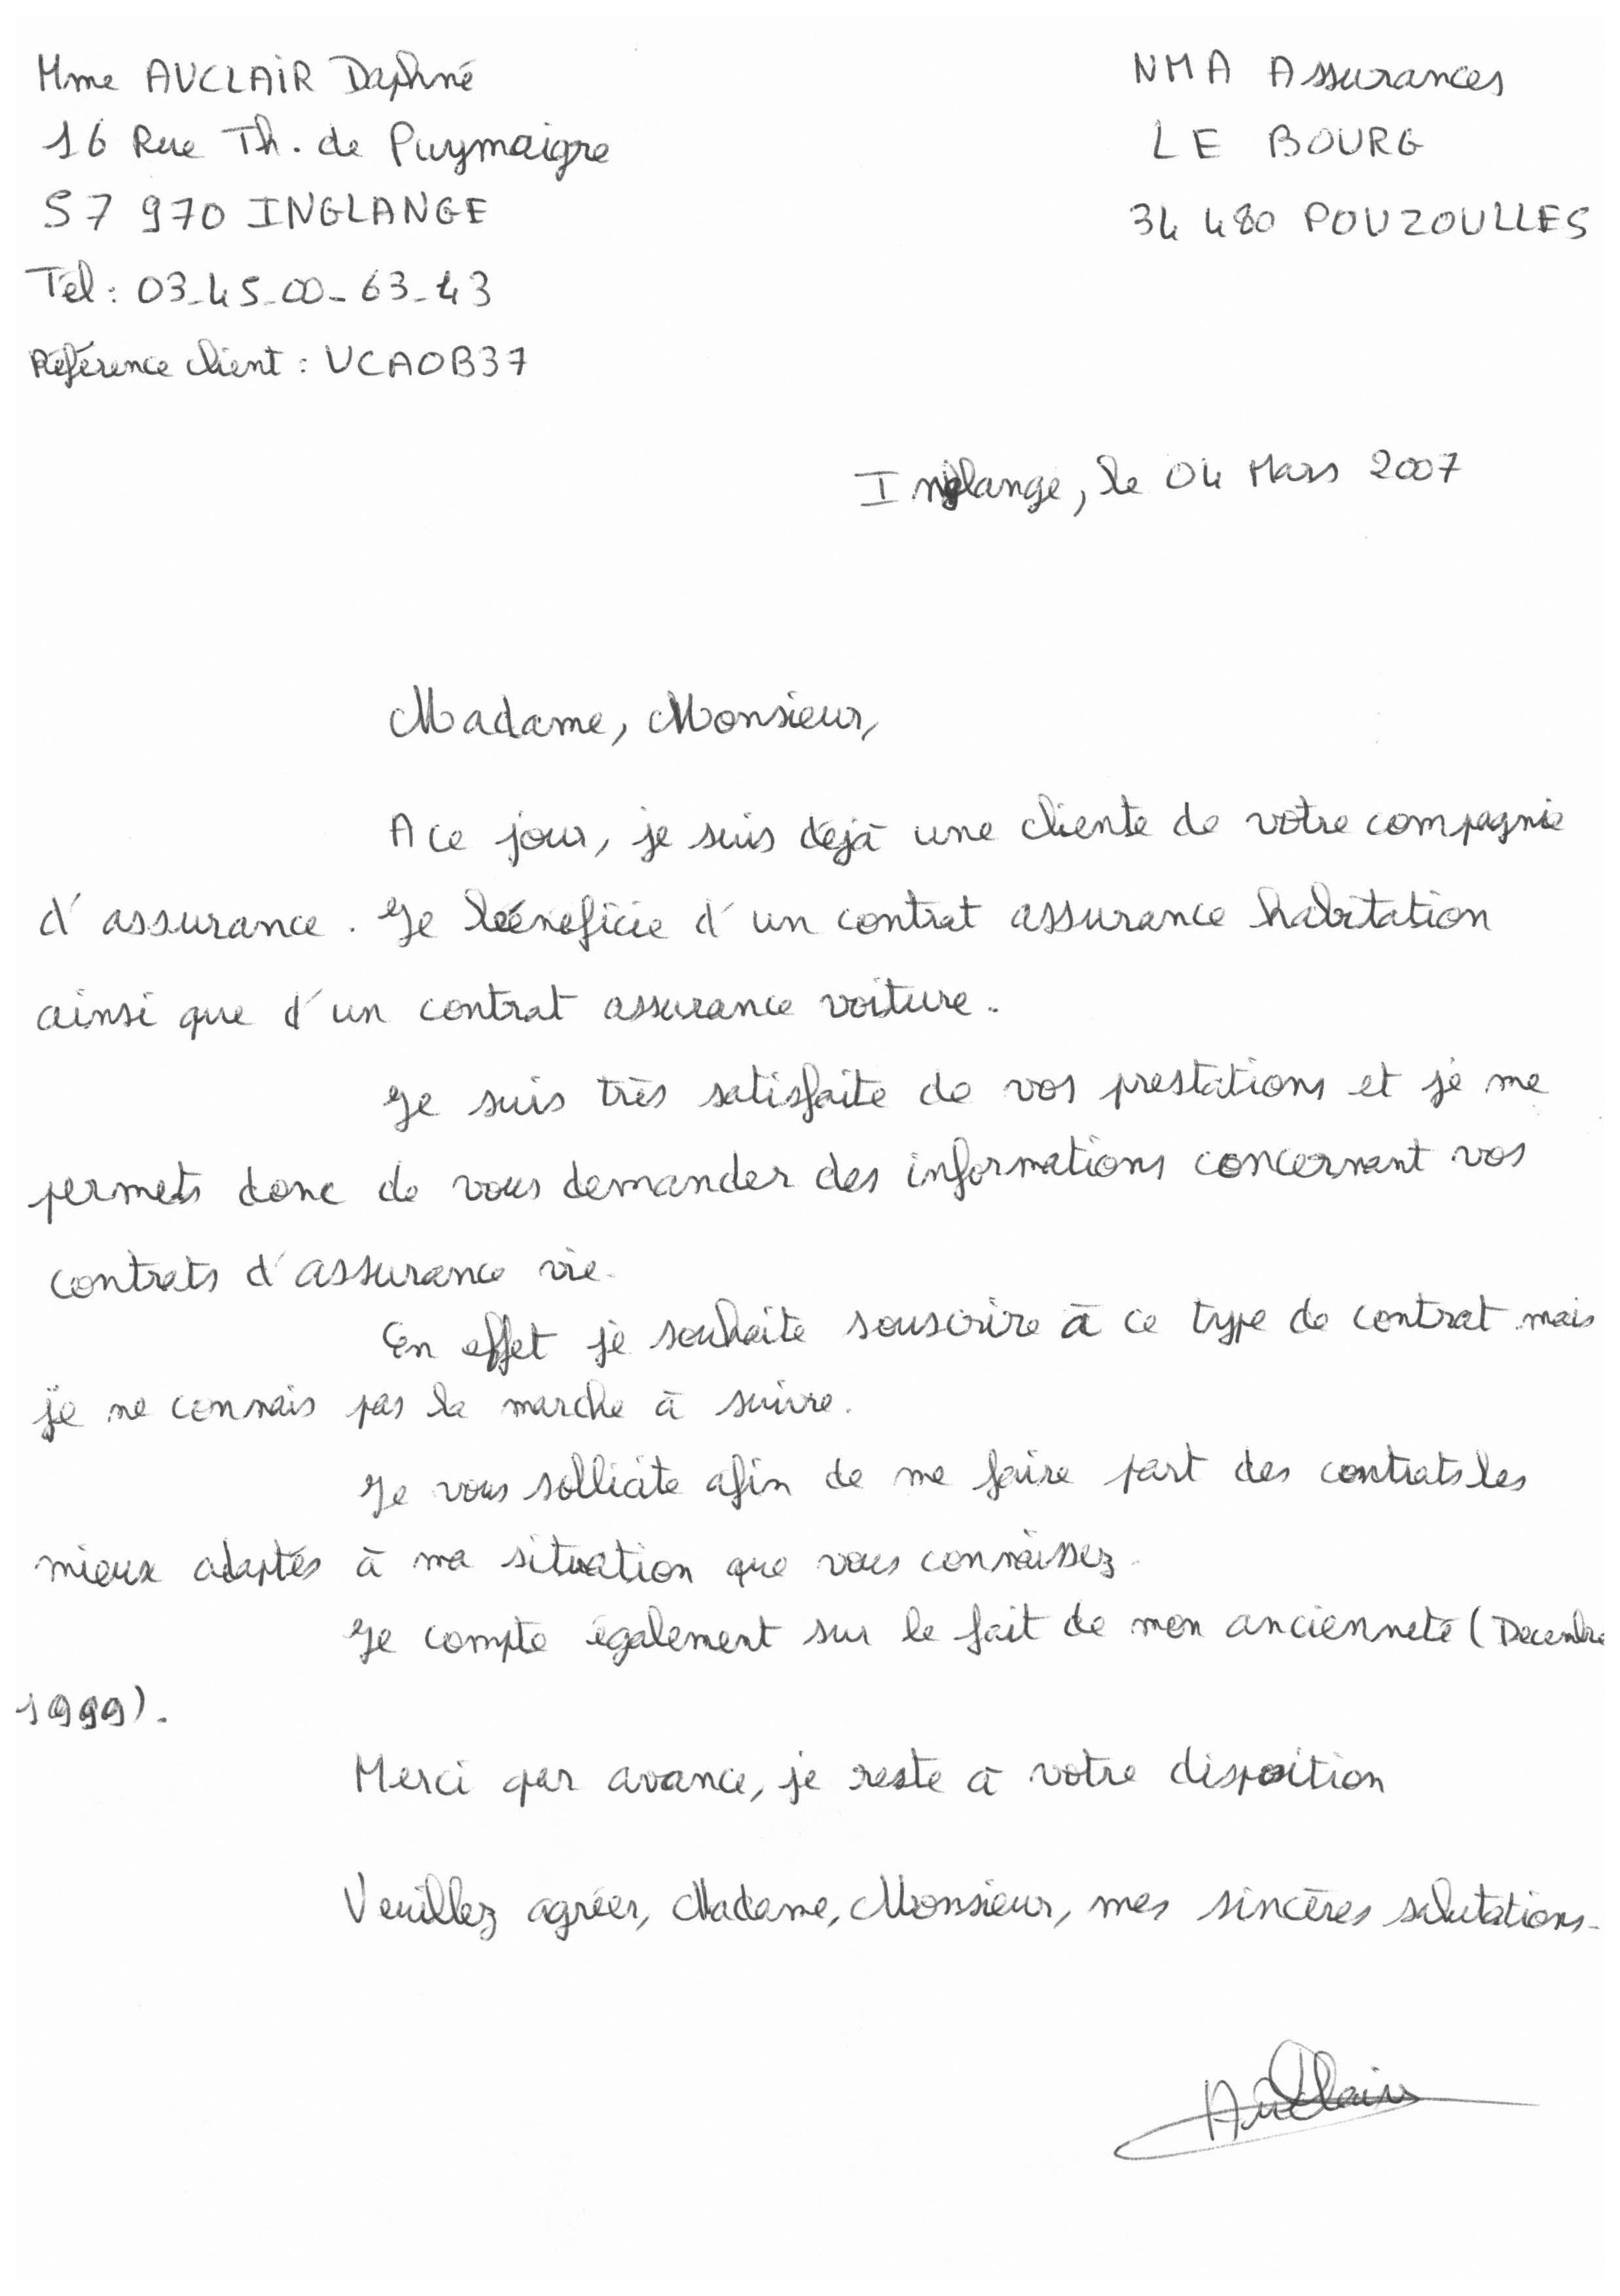 Mme AUCLAIR Daphné
16 Rue Th. de Puymaigre
57 970 INGLANGE
Tél : 03_45_00_63_43
Référence client : UCAOB37
NMA Assurances
LE BOURG
34 480 POUZOULLES
Inglange, le 04 Mars 2007
Madame, Monsieur,
A ce jour, je suis déjà une cliente de votre compagnie
d'assurance. Je bénéficie d'un contrat assurance habitation
ainsi que d'un contrat assurance voiture.
Je suis très satisfaite de vos prestations et je me
permets donc de vous demander des informations concernant vos
contrats d'assurance vie.
En effet je souhaite souscrire à ce type de contrat mais
je ne connais pas la marche à suivre.
Je vous sollicite afin de me faire part des contrats les
mieux adaptés à ma situation que vous connaissez.
Je compte également sur le fait de mon ancienneté (Decembre
1999).
Merci par avance, je reste à votre disposition
Veuillez agréer, Madame, Monsieur, mes sincères salutations.
Auclair